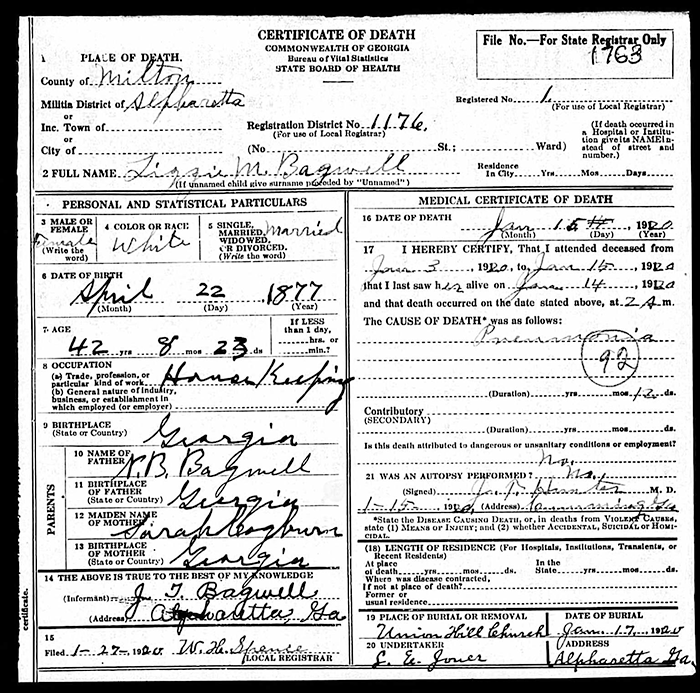 CERTIFICATE OF DEATH
COMMONWEALTH OF GEORGIA
Bureau of Vital Statistics
STATE BOARD OF HEALTH
File No.—For State Registrar Only
1763
1 PLACE OF DEATH.
County of Milton
Militia District of Alpharetta
or
Inc. Town of
or
City of
Registration District No. 1176.
(For use of Local Registrar)
Registered No. 1
(For use of Local Registrar)
(No St.; Ward)
(If death occurred in a Hospital or Institution give its NAME instead of street and number.)
2 FULL NAME Lizzie M. Bagwell
(If unnamed child give surname preceded by "Unnamed")
Residence In City Yrs. Mos. Days.
PERSONAL AND STATISTICAL PARTICULARS
3 MALE OR FEMALE
Female
(Write the word)
4 COLOR OR RACE
White
5 SINGLE, MARRIED, WIDOWED, OR DIVORCED.
Married
(Write the word)
6 DATE OF BIRTH
April 22 1877
(Month) (Day) (Year)
7 AGE
42 yrs 8 mos 23 ds
If LESS than 1 day, hrs. or min.?
8 OCCUPATION
(a) Trade, profession, or particular kind of work House Keeping
(b) General nature of industry, business, or establishment in which employed (or employer)
9 BIRTHPLACE
(State or Country) Georgia
PARENTS
10 NAME OF FATHER
B. Bagwell
11 BIRTHPLACE OF FATHER
(State or Country) Georgia
12 MAIDEN NAME OF MOTHER
Sarah Cogburn
13 BIRTHPLACE OF MOTHER
(State or Country) Georgia
14 THE ABOVE IS TRUE TO THE BEST OF MY KNOWLEDGE
(Informant) J. T. Bagwell
(Address) Alpharetta, Ga
15
Filed 1-27-1920 W. H. Spence
LOCAL REGISTRAR
certificate.
MEDICAL CERTIFICATE OF DEATH
16 DATE OF DEATH
Jan 15th, 1920
(Month) (Day) (Year)
17 I HEREBY CERTIFY, That I attended deceased from
Jan 3, 1920, to Jan 15, 1920
that I last saw her alive on Jan 14, 1920
and that death occurred on the date stated above, at 2 A m.
The CAUSE OF DEATH* was as follows:
Pneumonia
92
(Duration) yrs. mos. 12 ds.
Contributory
(SECONDARY)
(Duration) yrs. mos. ds.
Is this death attributed to dangerous or unsanitary conditions or employment?
No.
21 WAS AN AUTOPSY PERFORMED? No.
(Signed) M. D.
1-15-1920, (Address) Cumming Ga
*State the DISEASE CAUSING DEATH, or, in deaths from VIOLENT CAUSES, state (1) MEANS OF INJURY; and (2) whether ACCIDENTAL, SUICIDAL OR HOMICIDAL.
(18) LENGTH OF RESIDENCE (For Hospitals, Institutions, Transients, or Recent Residents)
At place of death yrs. mos. ds. In the State yrs. mos. ds.
Where was disease contracted,
If not at place of death?
Former or usual residence
19 PLACE OF BURIAL OR REMOVAL
Union Hill Church
DATE OF BURIAL
Jan. 17, 1920
20 UNDERTAKER
Jones
ADDRESS
Alpharetta Ga.